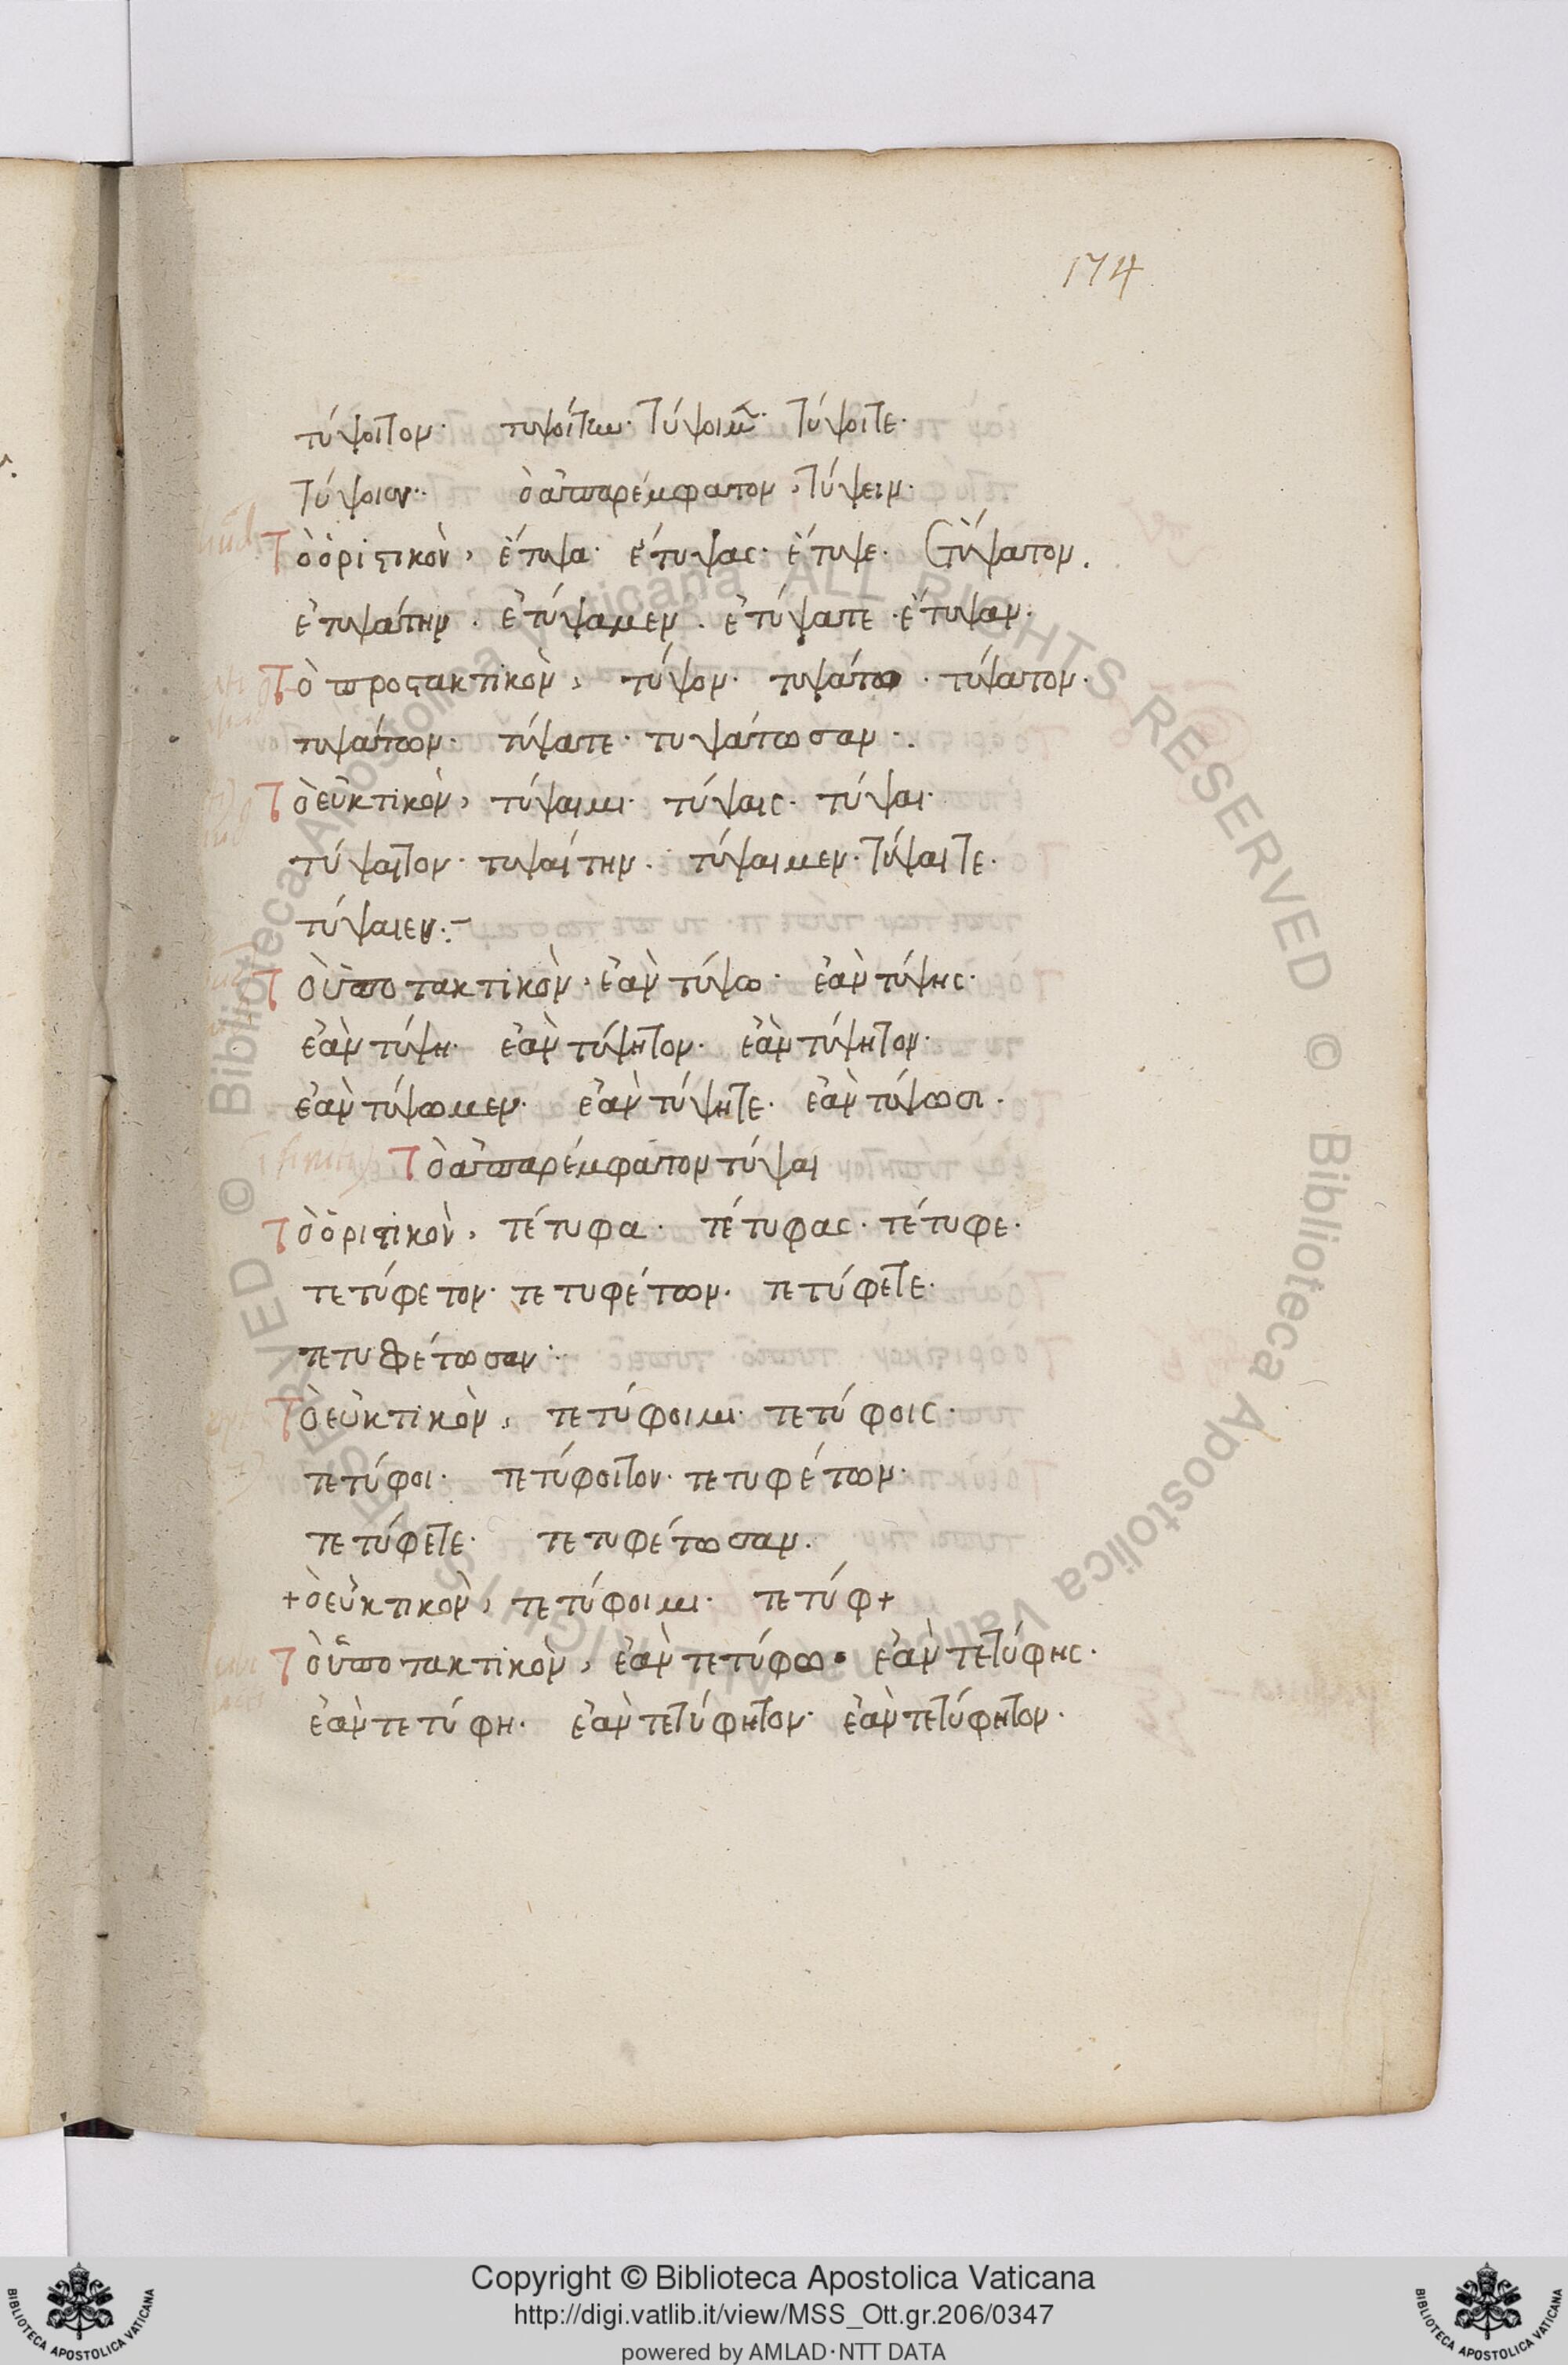 174
τύψοιτον· τυψοίτων· τύψοιμεν· τύψοιτε·
τύψοιεν· ὁ ἀπαρέμφατον, τύψειν·
Τὸ ὁριστικὸν, ἔτυψα· ἔτυψας· ἔτυψε· ἐτύψατον.
ἐτυψάτην. ἐτύψαμεν. ἐτύψατε· ἔτυψαν.
Τὸ προστακτικὸν, τύψον· τυψάτω· τύψατον·
τυψάτων· τύψατε· τυψάτωσαν·.
Τὸ εὐκτικὸν, τύψαιμι· τύψαις· τύψαι·
τύψαιτον· τυψαίτην· τύψαιμεν· τύψαιτε·
τύψαιεν:-
Τὸ ὑποτακτικὸν, ἐὰν τύψω· ἐὰν τύψης·
ἐὰν τύψη· ἐὰν τύψητον· ἐὰν τύψητον·
ἐὰν τύψωμεν· ἐὰν τύψητε· ἐὰν τύψωσι.
Τὸ ἀπαρέμφατον τύψαι
Τὸ ὁριστικὸν, τέτυφα· τέτυφας· τέτυφε·
τετύφετον· τετυφέτων· τετύφετε·
τετυφέτωσαν·
Τὸ εὐκτικὸν, τετύφοιμι· τετύφοις·
τετύφοι· τετύφοιτον· τετυφέτων·
τετύφετε· τετυφέτωσαν.
+ὸ εὐκτικὸν, τετύφοιμι· τετύφ+
Τὸ ὑποτακτικὸν, ἐὰν τετύφω· ἐὰν τετύφης·
ἐὰν τετύφη· ἐὰν τετύφητον· ἐὰν τετύφητον·
Copyright © Biblioteca Apostolica Vaticana
http://digi.vatlib.it/view/MSS_Ott.gr.206/0347
powered by AMLAD·NTT DATA